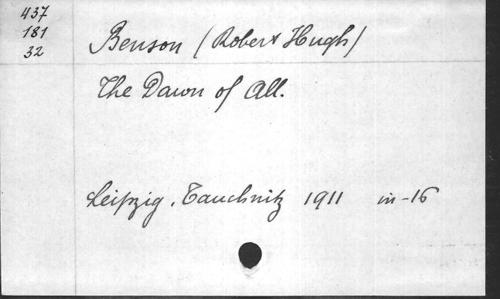 437
181
32
Benson (Robert Hugh)
The Dawn of All.
Leipzig, Tauchnitz 1911 in-16